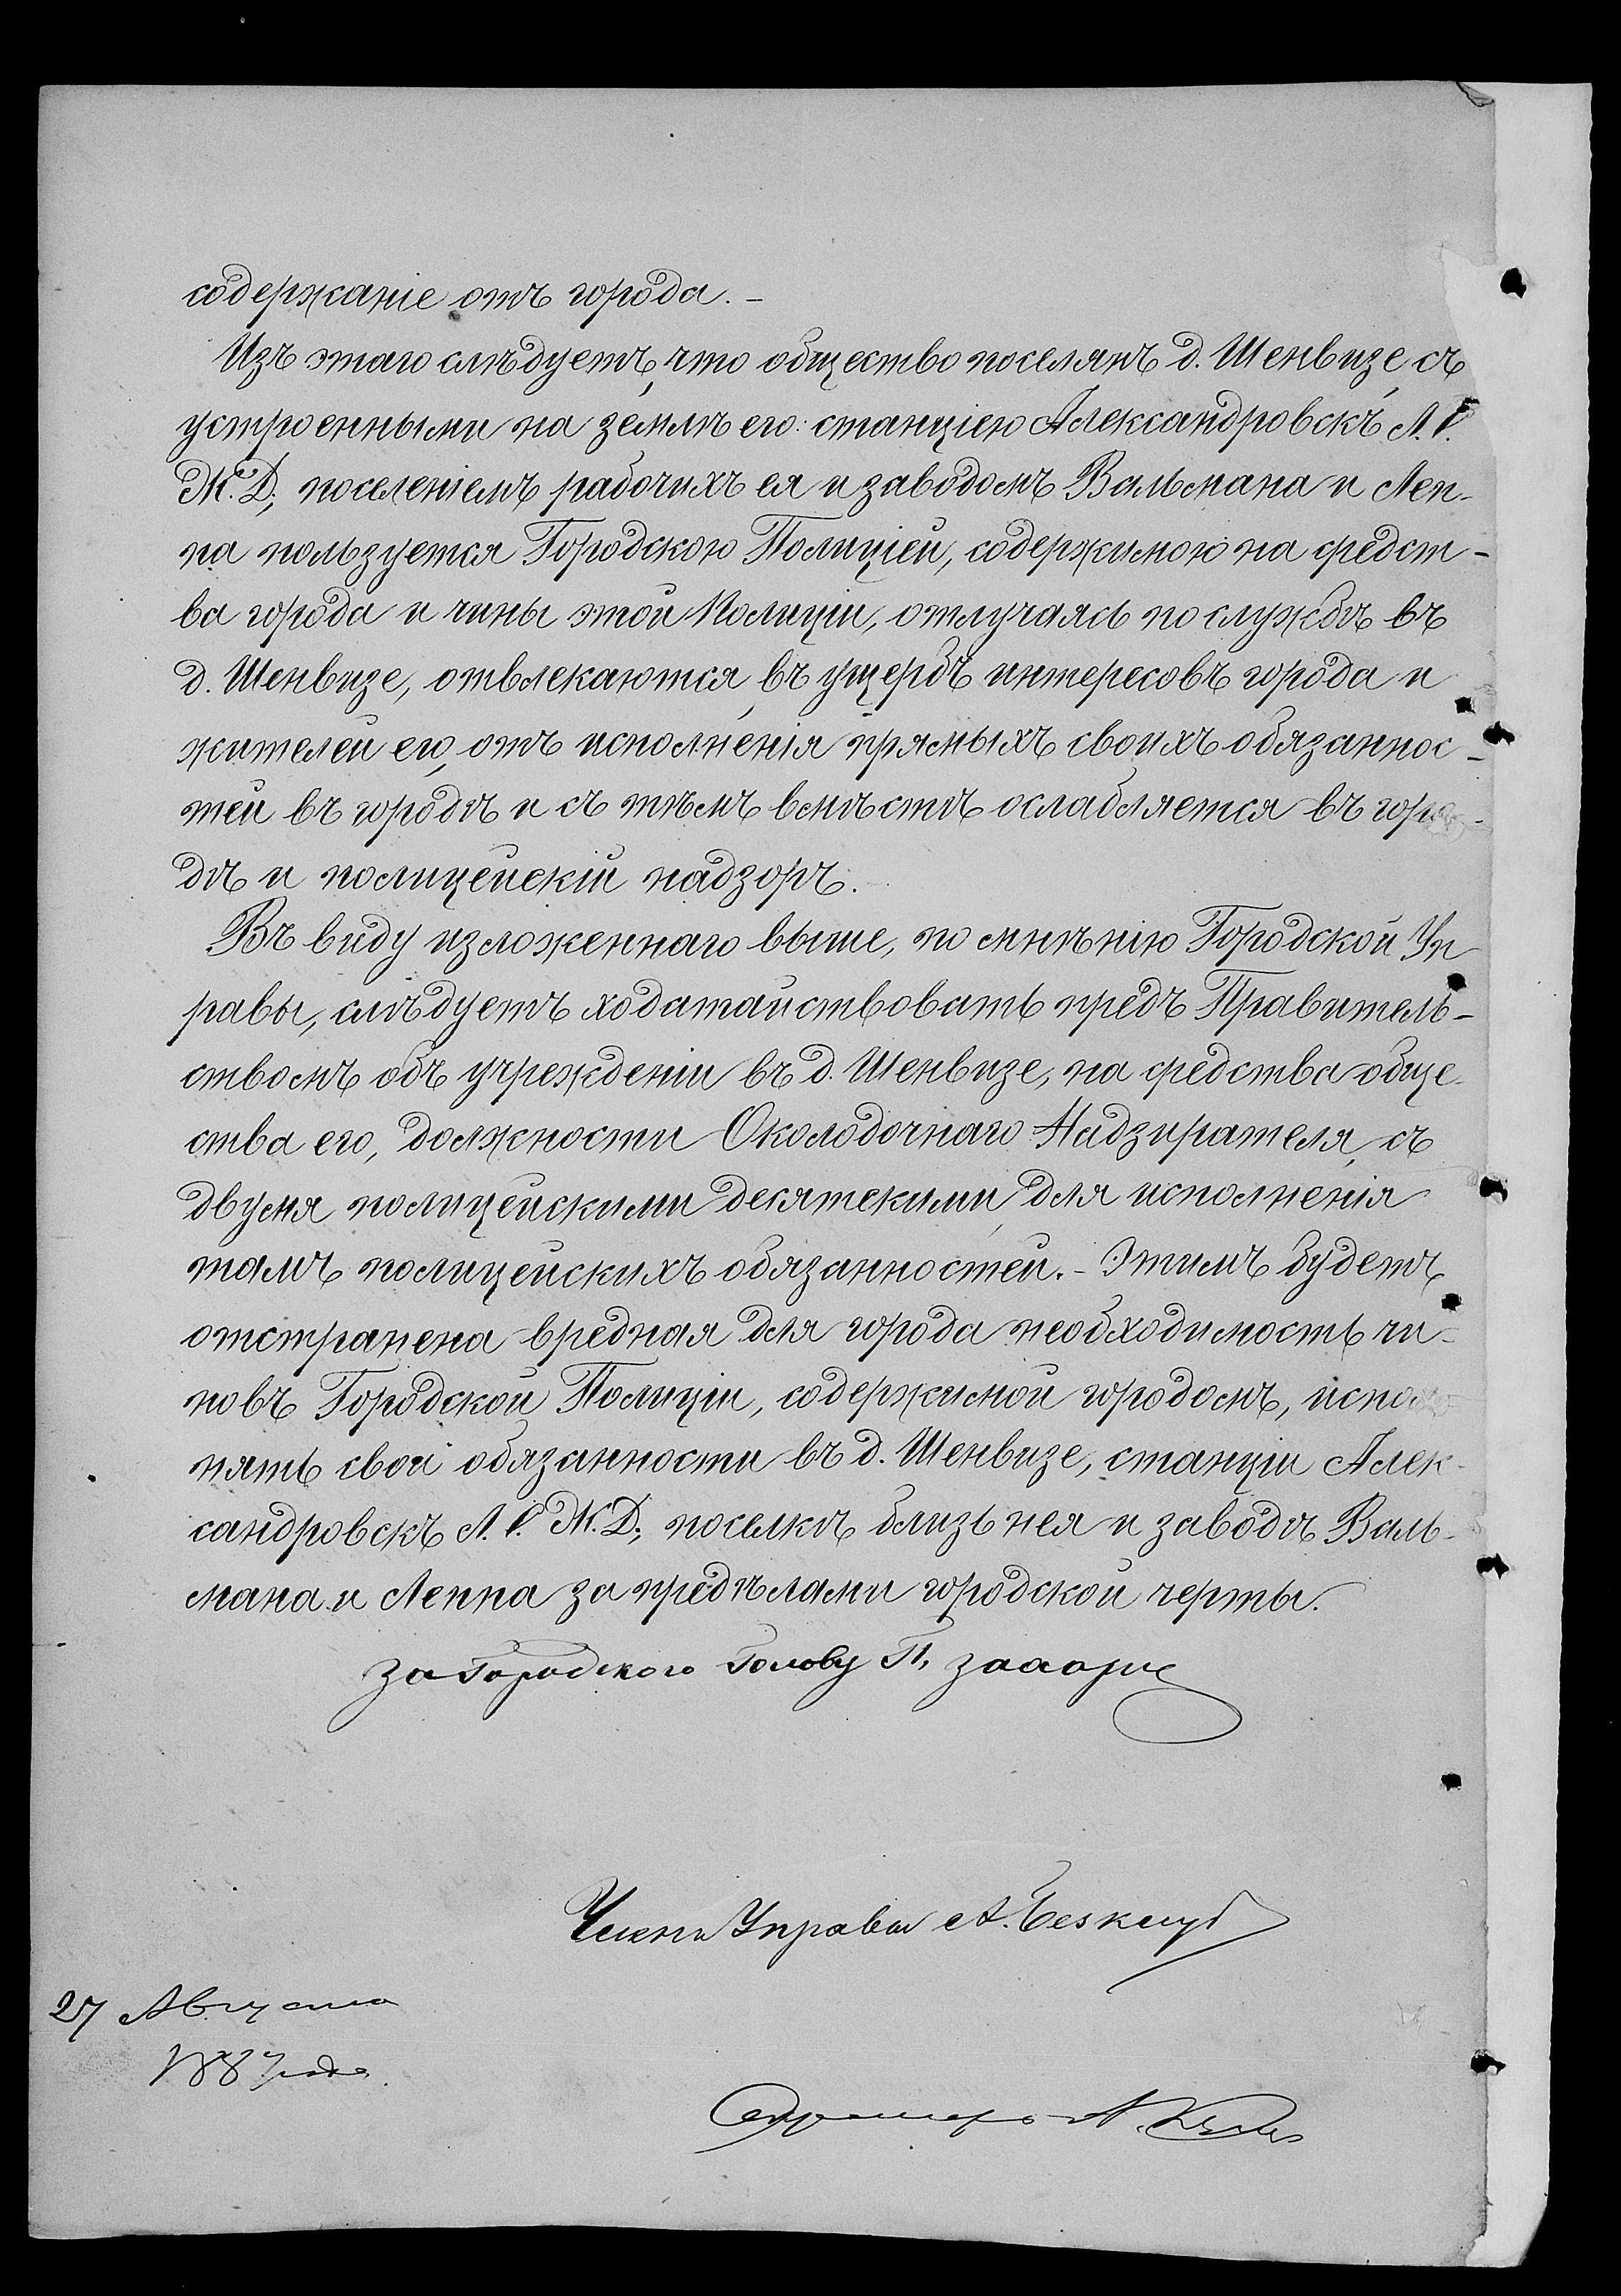 содержаніе отъ города. –
Изъ этаго слѣдуетъ, что общество поселянъ д. Шенвизе, съ
устроенными на землѣ его: станціею Александровскъ Л. С.
Ж. Д., поселеніемъ рабочихъ ея и заводомъ Вальмана и Леп-
па пользуется Городскою Полиціей, содержимою на средст-
ва города и чины этой Полиціи, отлучаясь по службѣ въ
д. Шенвизе, отвлекаются, въ ущербъ интересовъ города и
жителей его, отъ исполненія прямыхъ своихъ обязаннос-
тей въ городѣ и съ тѣмъ вмѣстѣ ослабляется въ горо-
дѣ и полицейскій надзоръ.
Въ виду изложеннаго выше, по мнѣнію Городской Уп-
равы, слѣдуетъ ходатайствовать предъ Правитель-
ствомъ объ учрежденіи въ д. Шенвизе, на средства обще-
ства его, должности Околодочнаго Надзирателя, съ
двумя полицейскими десятскими, для исполненія
тамъ полицейскихъ обязанностей. – Этимъ будетъ
отстранена вредная для города необходимость чи-
новъ Городской Полиціи, содержимой городомъ, испол-
нять свои обязанности въ д. Шенвизе, станціи Алек-
сандровскъ Л. С. Ж. Д., поселкѣ близь нея и заводѣ Валь-
мана и Леппа за предѣлами городской черты.
За Городского Голову П.
Членъ Управы А.
27 Августа
1887 года.
Секретарь